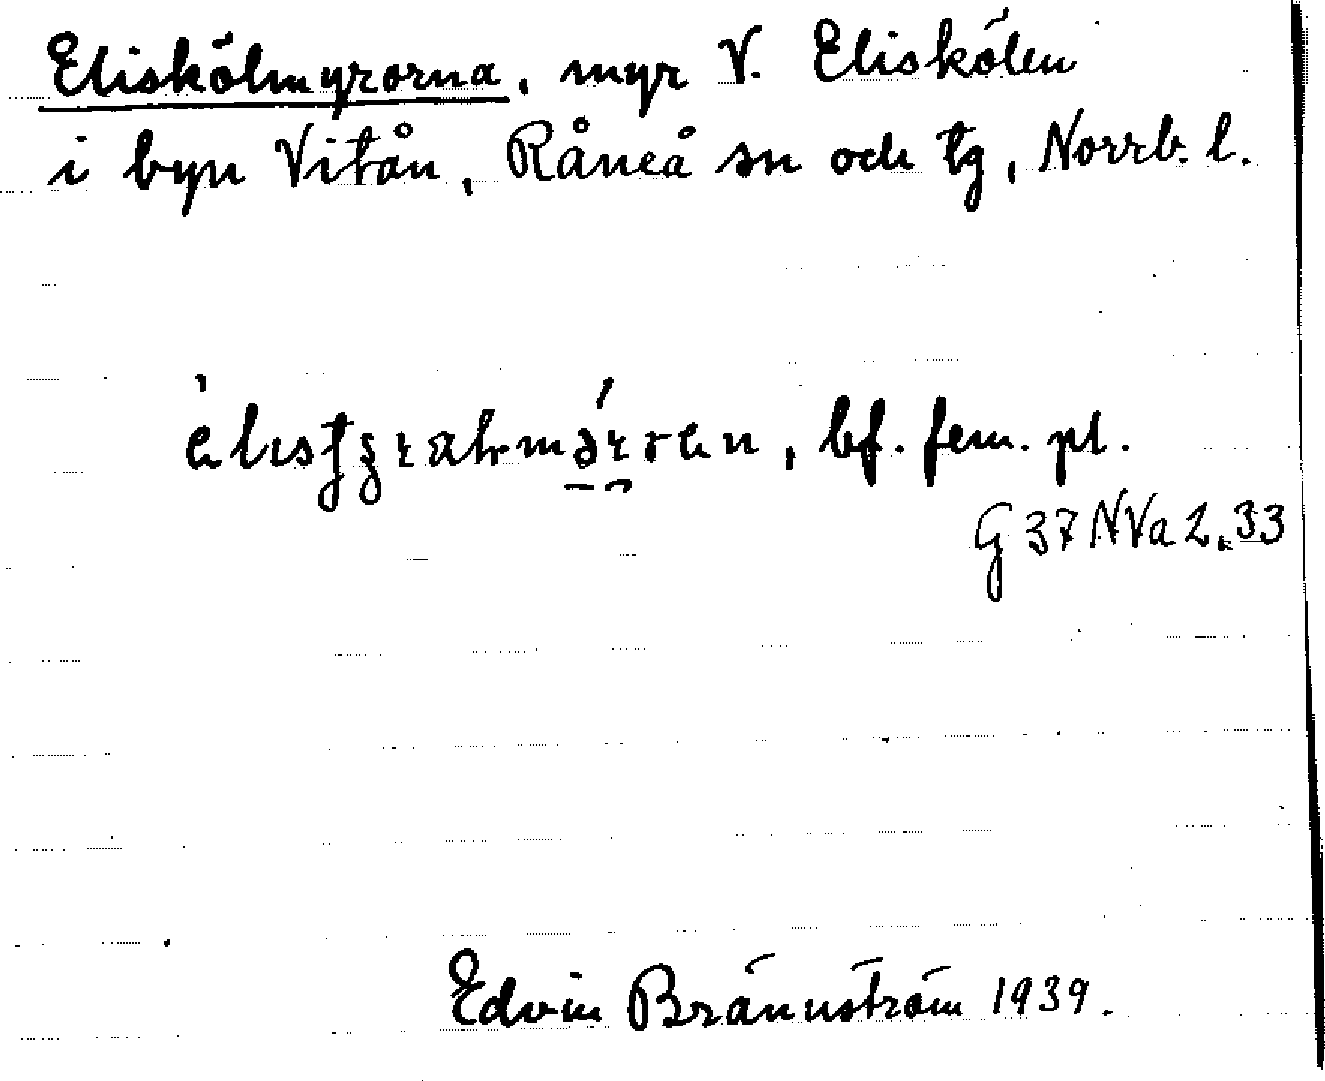 Eliskölmyrorna, myr V. Eliskölen
i byn Vitån, Råneå sn och tg, Norrb. l.
bf. fem. pl.
G 37 NVa 2.33
Edvin Brännström 1939.